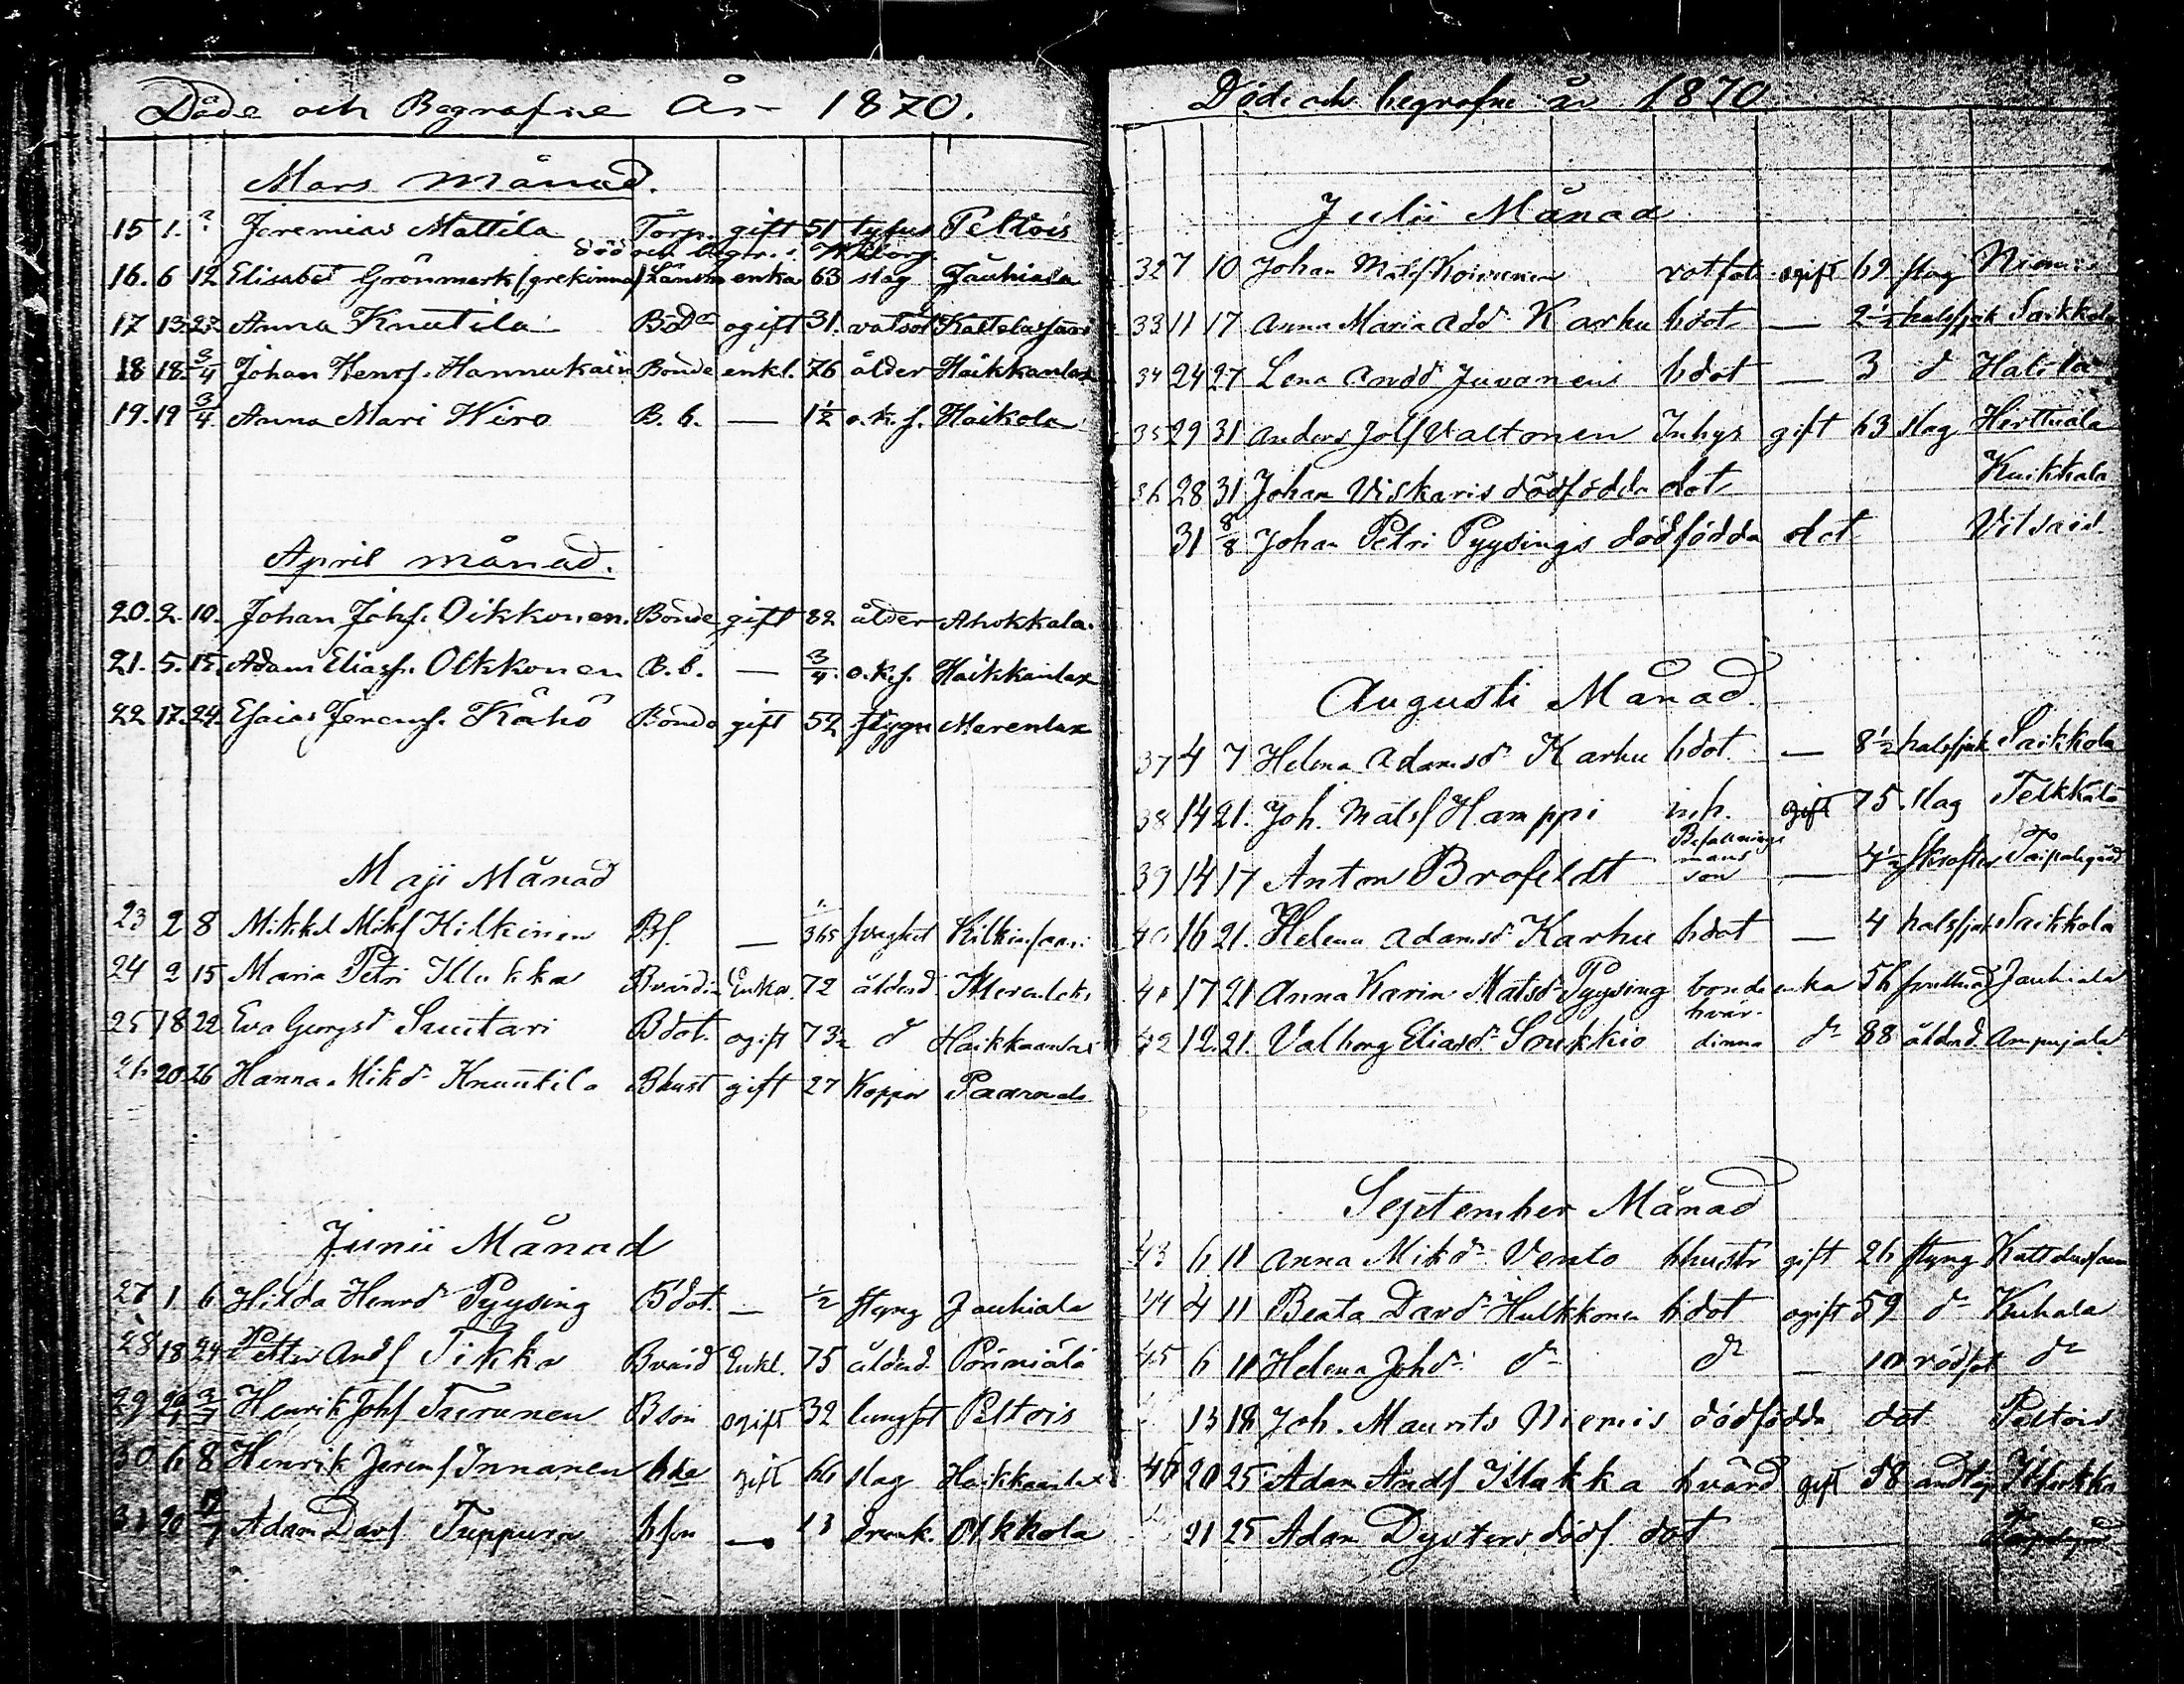 Döde och Begrafne År 1870.
Mars månad.
15 1. ? Jeremias Mattila Torp. gift 51 tyfus Peltois
död och begr. i Wiborg.
16. 6 12 Elisabet Grönmark (grekinna) Länsm enka 63 slag Jäuhiala
17 13. 27. Anna Knutila BDr ogift 31. vatsot Kattelussaari
18 18. 3/4 Johan Henrs. Hannukain Bonde enkl. 76 ålder Haikkanlax
19. 19 3/4 Anna Mari Wiro B. b. — 1 1/2 o.k.s. Haikola
April månad.
20. 2. 10. Johan Johs. Oikkonen. Bonde gift 82 ålder Ahokkala.
21. 5. 15. Adam Eliass. Olkkonen B. b. — 3/4 o.k.s. Haikkanlax
22 17. 24. Esaias Jerems. Kähö Bonde gift 52 stygn Merenlax
Maji Månad
23 2 8 Mikkel Miks Kilkinen Bs. — 365 svaghet Kilkinsaari
24 2 15 Maria Petri Illukka Bvärdin Enka. 72 ålderd.
25 18 22 Eva Georgsd. Suutari Bdot. ogift 73 1/2 d Haikkaanlax
26 20 26 Hanna Mikd Knuutila Bhust gift 27 Koppor
Junii Månad
27 1 6 Hilda Henrd Pyysing Bdot. — 1/2 styng Jauhiala
28 18 24 Petter Ands Tikka Bvärd Enkl. 75 ålderd.
29 29 3/7 Henrik Johs Turunen Bson ogift 32 lungsot Peltois
30 6 8 Henrik Jerems Innanen bde gift 66 slag Haikkaanlax
31 20 17/7 Adam Davs Tuppura bson — 13 drunk. Olkkola
Döde och begrafne år 1870
Julii Månad
32 7 10 Johan Mats Koivunen rotfat. ogift 69 slag
33 11 17 Anna Maria Add Karhu bdot — 2 1/2 halssjuk Saikkola
34 24 27 Lena Andd Juvaneni bdot — 3 d Halola
35 29 31 Anders Jols Valtonen Inhys gift 63 slag Herttuala
36 28 31 Johan Viskaris dödfödda dot Kuikkala
31 8/8 Johan Petri Pyysings dödfödda dot
Augusti Månad.
37 4 7 Helena Adamsd Karhu bdot. — 8 1/2 halssjuk Saikkola
38 14 21. Joh. Mats Hamppi inh. ogift 75. slag Telkkälä
39 14 17 Anton Brofeldt Befallningsmans son — 4 1/2 Skrofler
40 16 21. Helena Adamsd Karhu bdot — 4 halssjuk Saikkola
41 17 21 Anna Karin Matsd Pyysing bonde enka 56 Jauhiala
42 12. 21. Valborg Eliasd Soukkio bvärdinna d 88 ålderd. Ampujala
September Månad
43 6 11 Anna Mikd Vento bhustr gift 26 styng Kattelussaari
44 4 11 Beata Davd Hulkkonen bdot ogift 59 d Kuhala
45 6 11 Helena Johd d d — rödsot d
13 18 Joh. Maurits Niemis dödfödda dot Peltois
46 20 25 Adam Ands Illukka bvärd gift 58 Illukka
21 25 Adam Dysters dödf. dot —